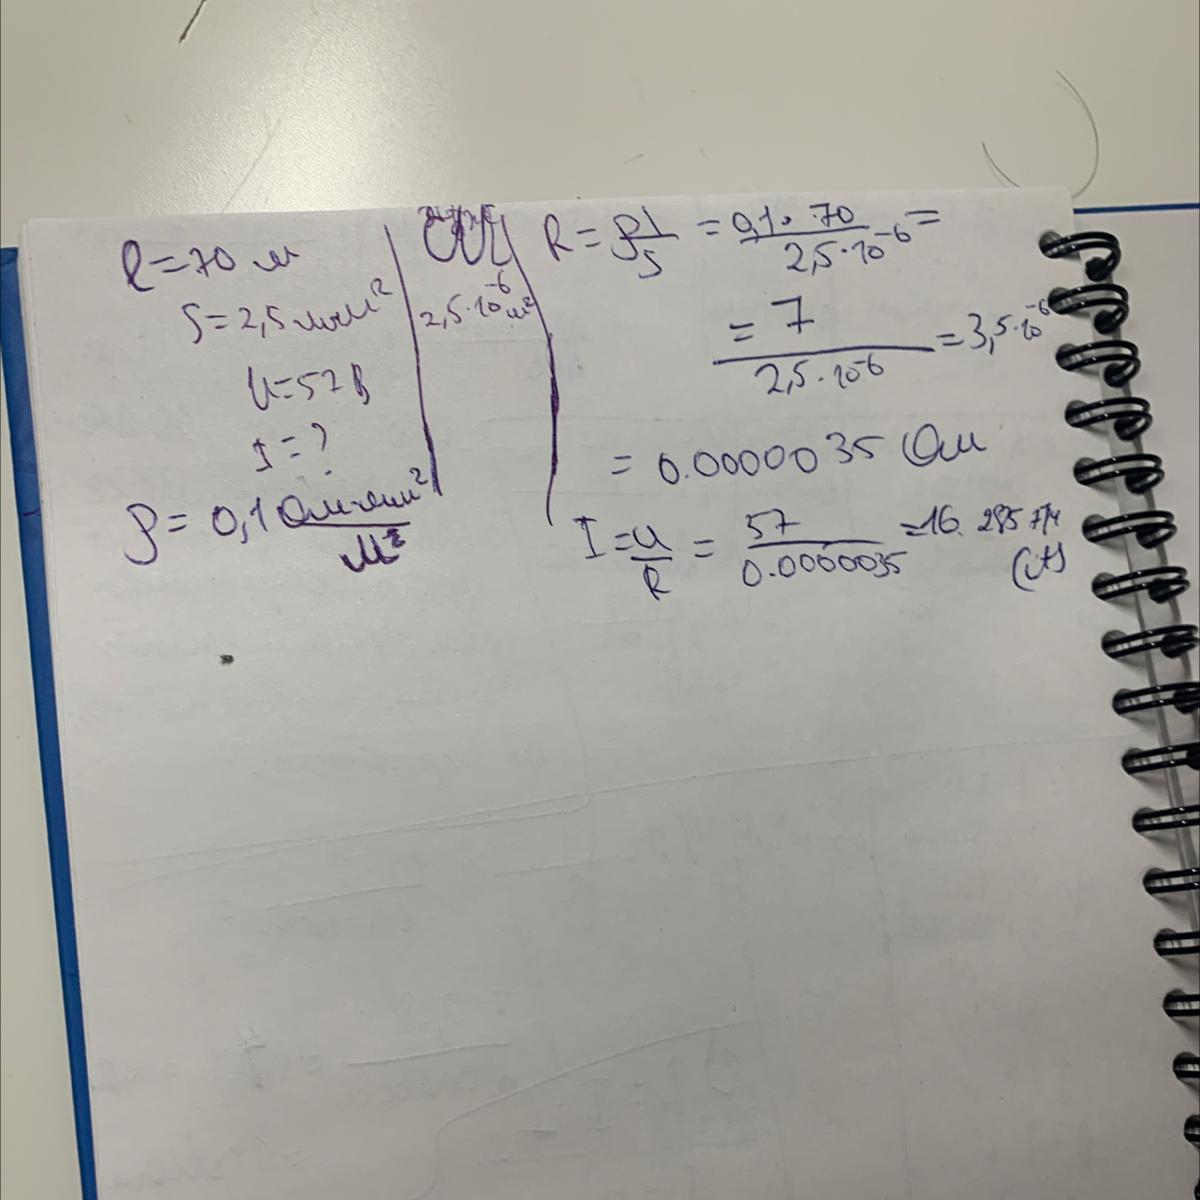 l=70 м
S=2,5 мм²
U=57 В
I=?
ρ= 0,1 Ом·мм²/м
СИ
2,5·10⁻⁶ м²
R = ρl/S = 0,1 · 70 / 2,5·10⁻⁶ =
= 7 / 2,5·10⁻⁶ = 3,5·10⁻⁶
= 0.0000035 Ом
I = U/R = 57 / 0.0000035 = 16. 285 714
(А)